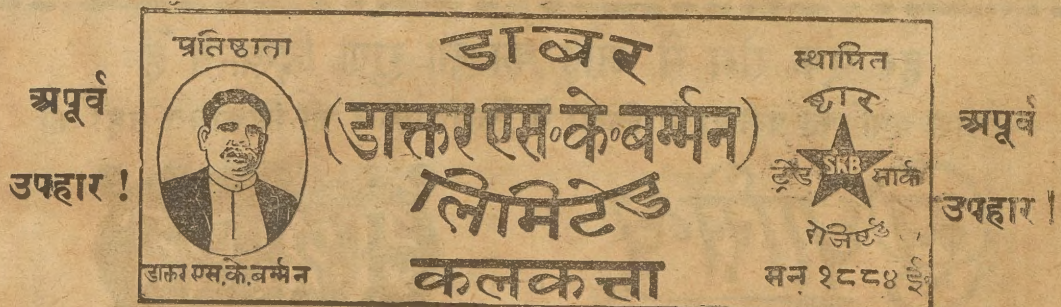 अपूर्व
उपहार !
प्रतिष्ठाता
डाक्तर एस.के.बर्म्मन
डाबर
(डाक्तर एस॰के॰बर्म्मन)
लिमिटेड
कलकत्ता
स्थापित
ष्टार
SKB
ट्रेड मार्क
रेजिष्टर्ड
सन १८८४ ई॰
अपूर्व
उपहार !